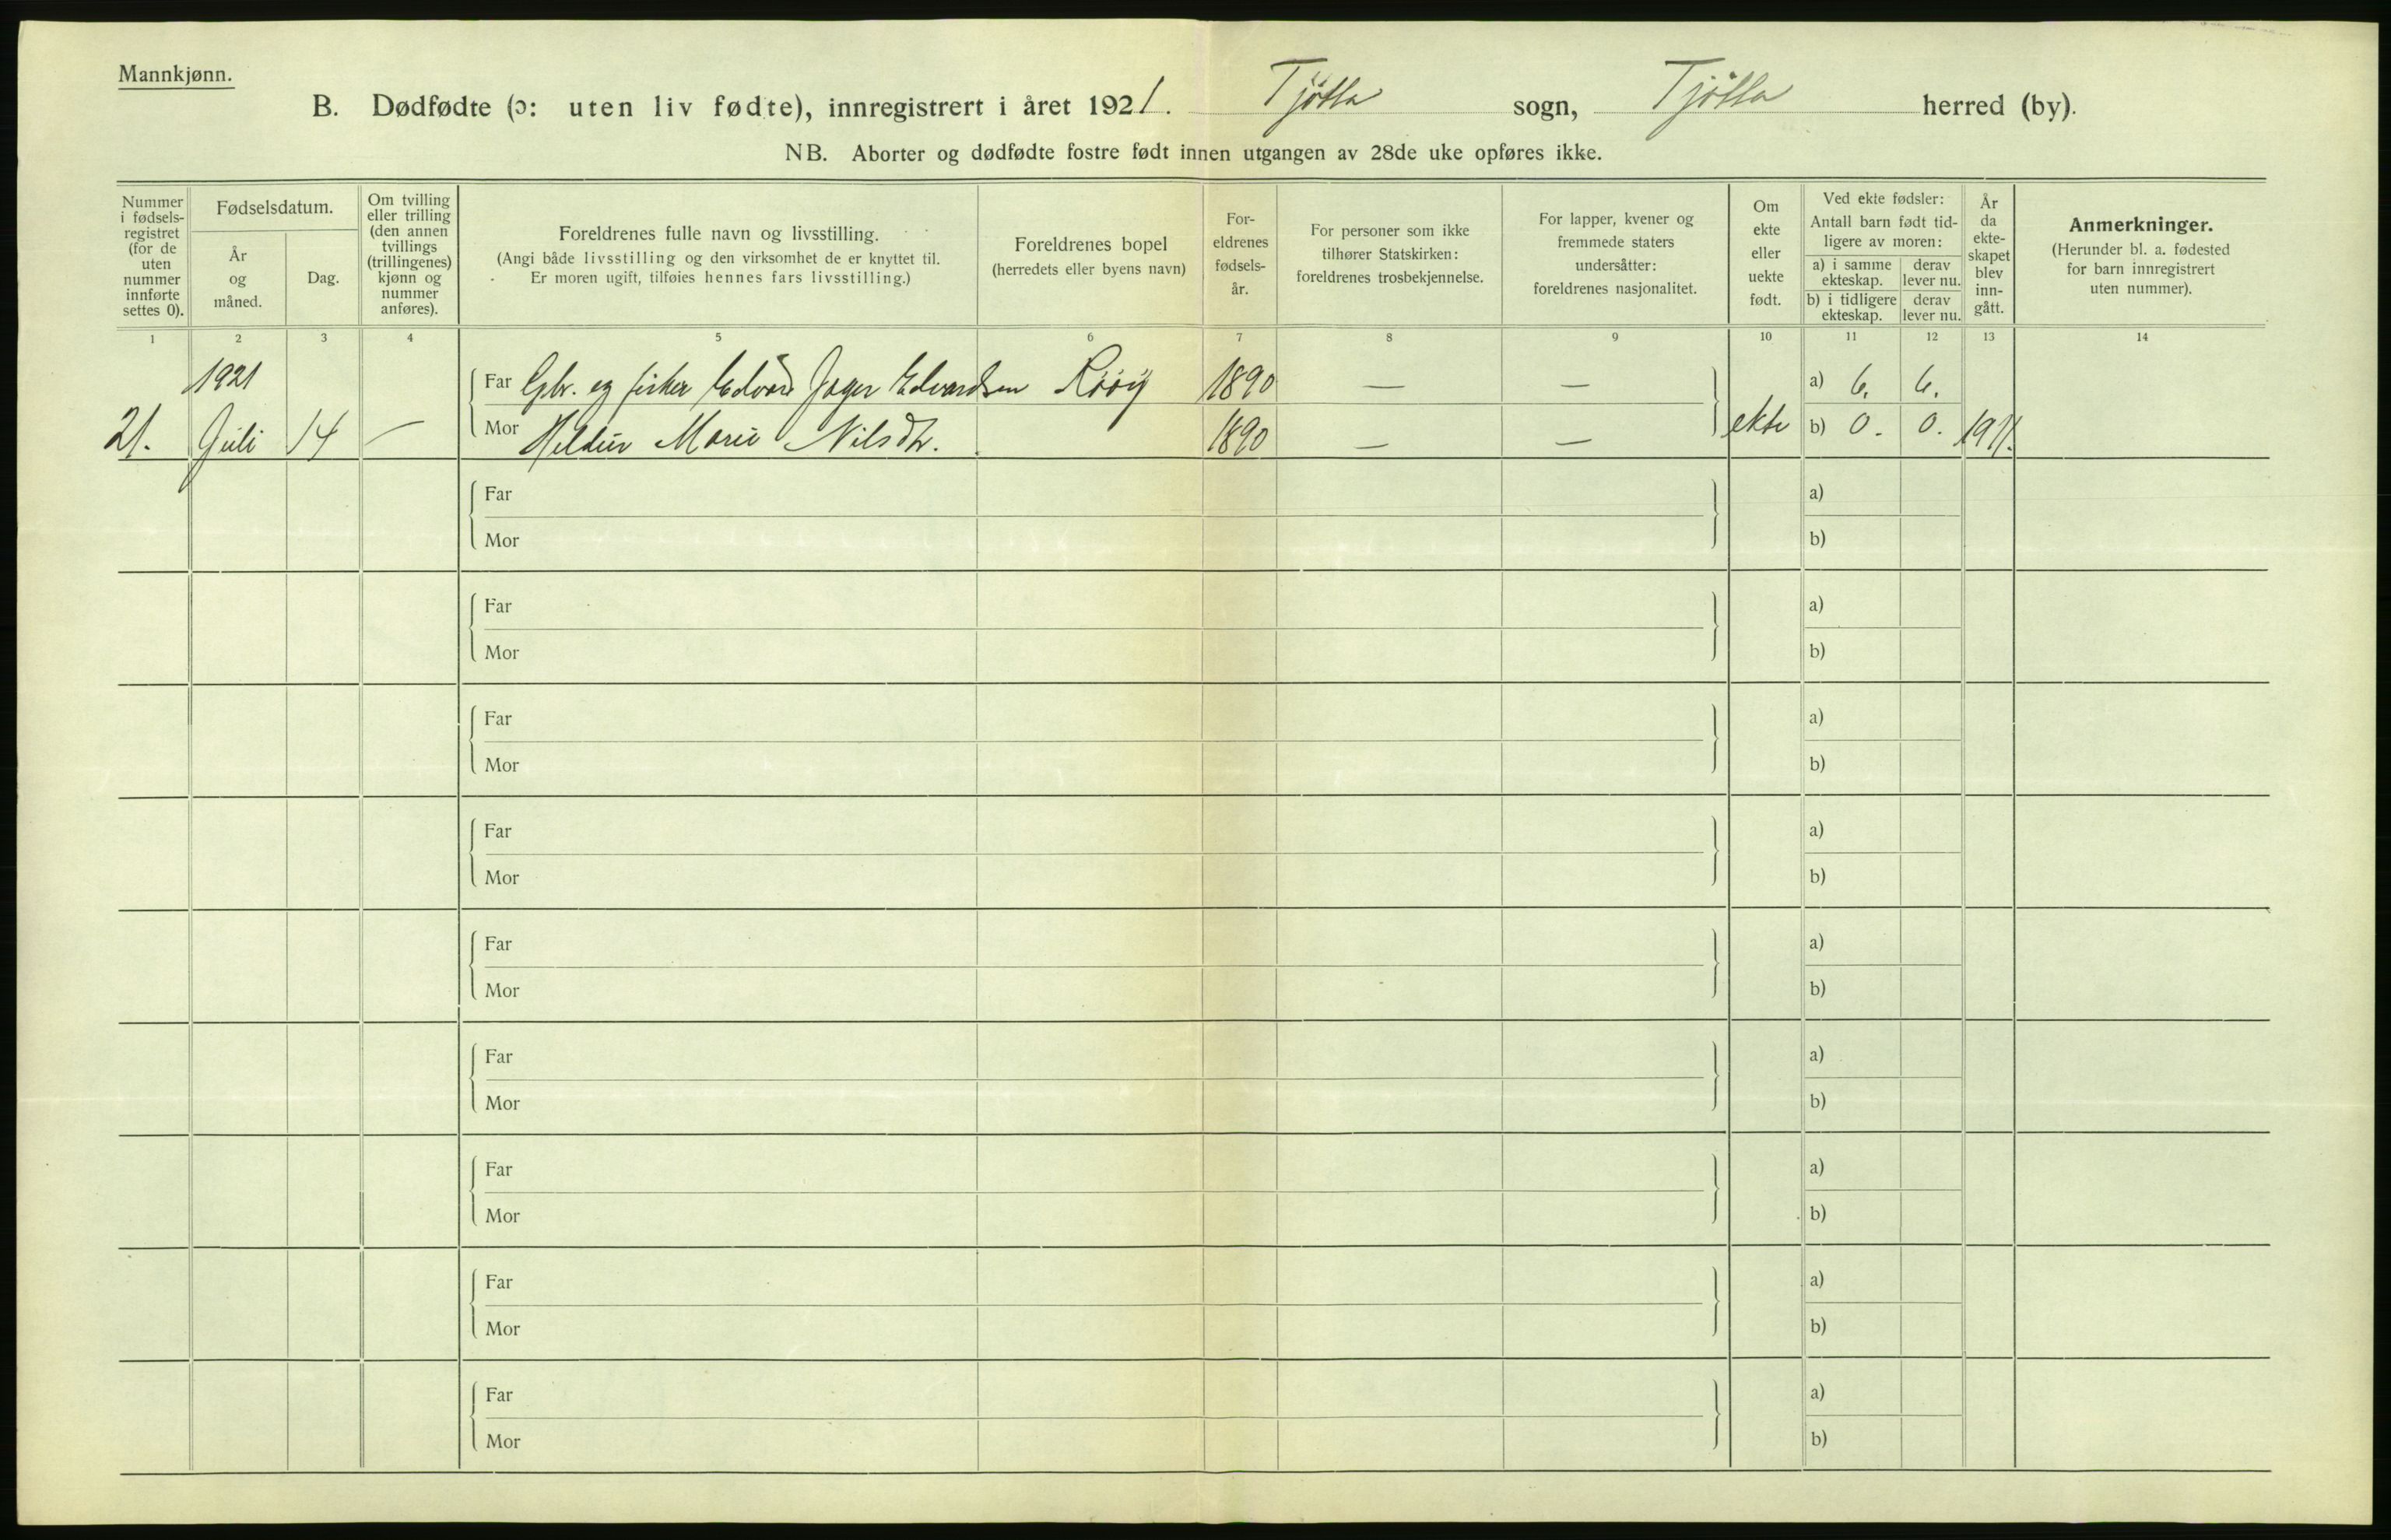 Mannkjønn.
B. Dødfødte (ɔ: uten liv fødte), innregistrert i året 1921. Tjøtta sogn, Tjøtta herred (by).
NB. Aborter og dødfødte fostre født innen utgangen av 28de uke opføres ikke.
Nummer i fødsels-registret (for de uten nummer innførte settes 0).
Fødselsdatum.
År og måned.
Dag.
Om tvilling eller trilling (den annen tvillings (trillingenes) kjønn og nummer anføres).
Foreldrenes fulle navn og livsstilling.
(Angi både livsstilling og den virksomhet de er knyttet til.
Er moren ugift, tilføies hennes fars livsstilling.)
Foreldrenes bopel
(herredets eller byens navn)
For-eldrenes fødsels-år.
For personer som ikke tilhører Statskirken: foreldrenes trosbekjennelse.
For lapper, kvener og fremmede staters undersåtter: foreldrenes nasjonalitet.
Om ekte eller uekte født.
Ved ekte fødsler:
Antall barn født tid-ligere av moren:
a) i samme ekteskap.
derav lever nu.
b) i tidligere ekteskap.
derav lever nu.
År da ekte-skapet blev inn-gått.
Anmerkninger.
(Herunder bl. a. fødested for barn innregistrert uten nummer).
1 2 3 4 5 6 7 8 9 10 11 12 13 14
1921
Far Gbr. og fisker Edvard Jager Edvardsen 1890 — — a) 6. 6.
21. Juli 14 — Mor Hildur Marie Nilsdtr. 1890 — — ekte b) 0. 0. 1911.
Far a)
Mor b)
Far a)
Mor b)
Far a)
Mor b)
Far a)
Mor b)
Far a)
Mor b)
Far a)
Mor b)
Far a)
Mor b)
Far a)
Mor b)
Far a)
Mor b)